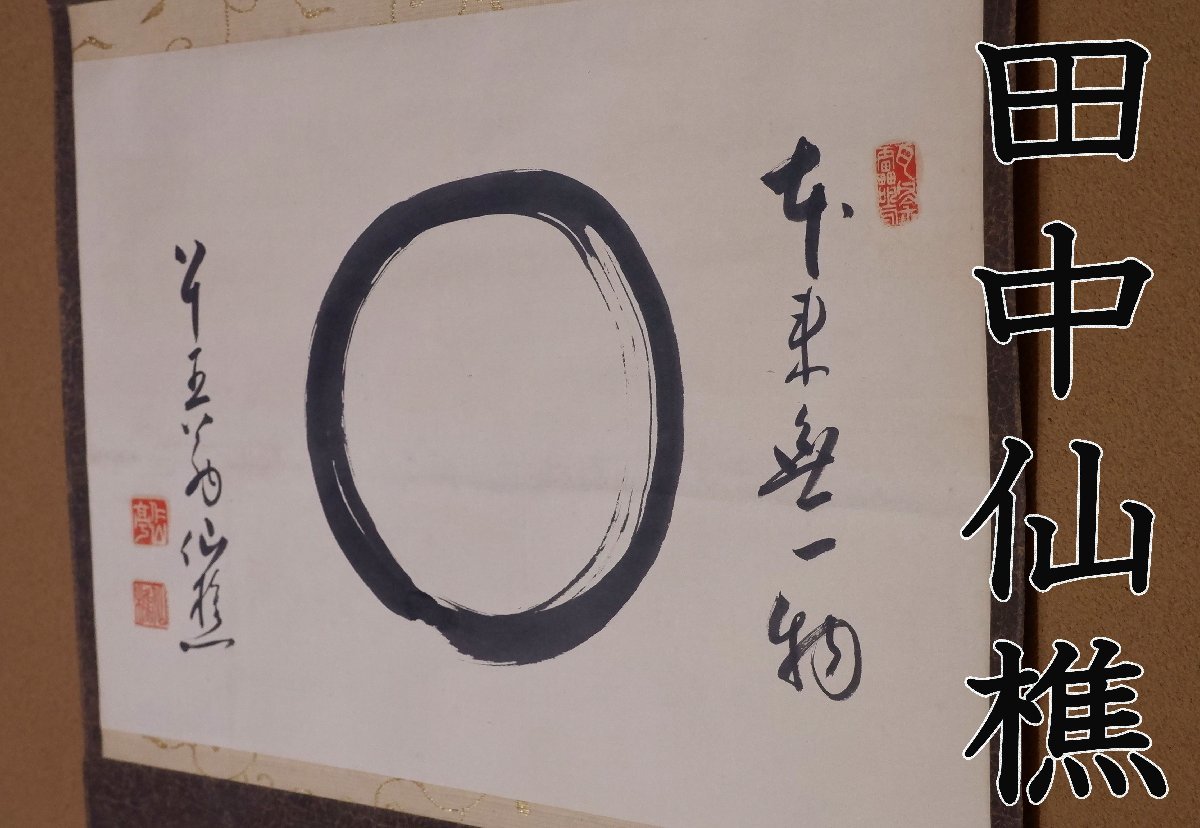 田中仙樵
本来無一物
八十五翁仙樵